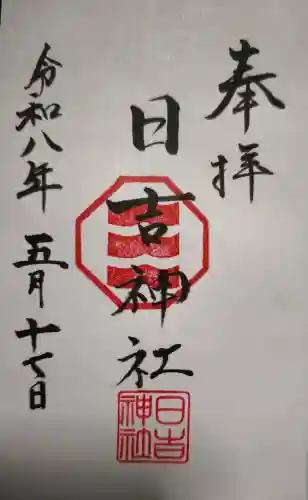 奉拝
日吉神社
日吉神社
令和八年 五月十七日